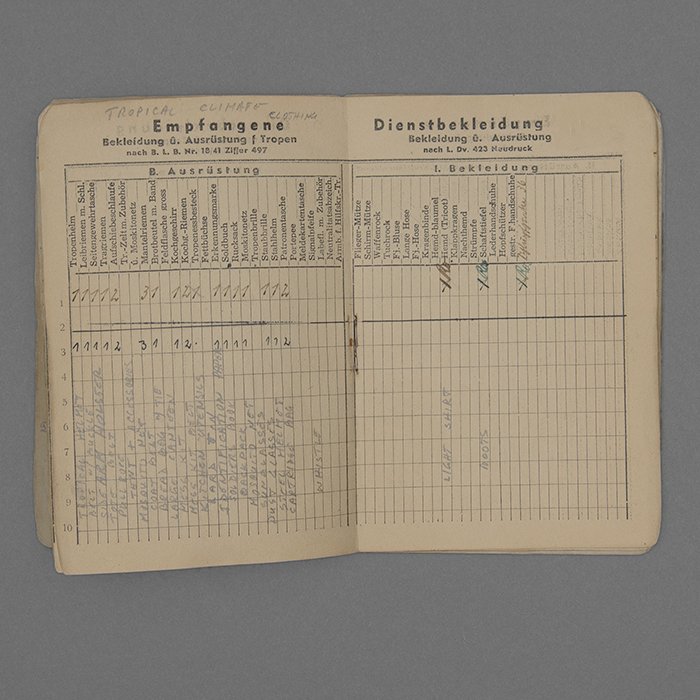 TROPICAL CLIMATE
CLOTHING
Empfangene
Bekleidung ü. Ausrüstung f Tropen
nach B. L. B. Nr. 18/41 Ziffer 497
B. Ausrüstung
Tropenhelm
Leibriemen m. Schl.
Seitengewehrtasche
Tragriemen
Aufschiebeschlaufe
Tr.-Zelt m. Zubehör
ü. Moskitonetz
Mantelriemen
Brotbeutel m. Band
Feldflasche gross
Kochgeschirr
Kochg.-Riemen
Tropenessbesteck
Fettbüchse
Erkennungsmarke
Soldbuch
Rucksack
Moskitonetz
Tropenbrille
Staubbrille
Stahlhelm
Patronentasche
Portepee
Meldekartentasche
Signalpfeife
Labefl. m. Zubehör
Neutralitätsabzeich.
Armb. f. Hilfskr.-Tr.
1 1 1 1 1 2 3 1 1 2 1 1 1 1 1 1 1 2
1
2
3
4
5
6
7
8
9
10
1 1 1 1 1 2 3 1 1 2 1 1 1 1 1 1 2
TROPICAL HELMET
BELT W/ BUCKLE
SIDE ARM HOLSTER
TENT + ACCESSORIES
MOSQUITO NET
COAT BELT
BREAD BAG W TIE
LARGE CANTEEN
MESS KIT
MESS KIT BELT
KITCHEN UTENSILS
LARD TIN
IDENTIFICATION
SOLDIERS BOOK
BACK PACK
MOSQUITO NET
SUN GLASSES
DUST GLASSES
STEEL HELMET
CARTRIDGE BAG
WHISTLE
Dienstbekleidung
Bekleidung ü. Ausrüstung
nach L. Dv. 423 Neudruck
I. Bekleidung
Flieger-Mütze
Schirm-Mütze
Waffenrock
Tuchrock
Fl.-Bluse
Lange Hose
Fl.-Hose
Kragenbinde
Hemd-blaumel
Hemd (Tricot)
Klappkragen
Nachthemd
Strümpfe
Schaftstiefel
Lederhandschuhe
Kopfschützer
gestr. F.handschuhe
LIGHT SHIRT
BOOTS